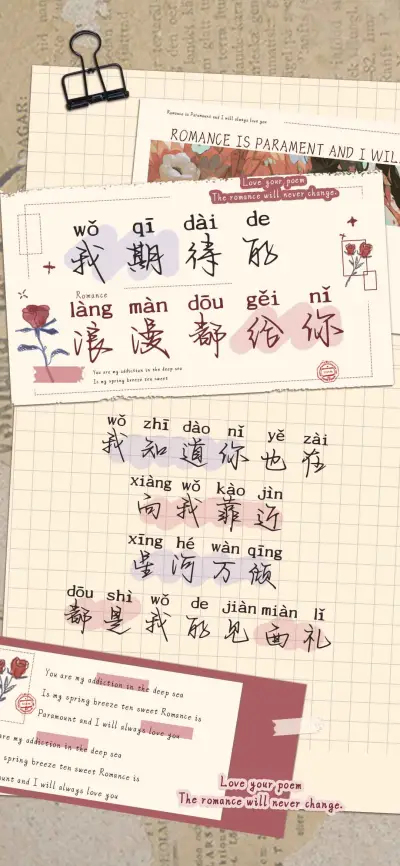 Romance is Paramount and I will always love you
ROMANCE IS PARAMENT AND I WIL
Love your poem
The romance will never change.
wǒ qī dài de
我期待的
Romance
làng màn dōu gěi nǐ
浪漫都给你
You are my addiction in the deep sea
Is my spring breeze ten sweet
wǒ zhī dào nǐ yě zài
我知道你也在
xiàng wǒ kào jìn
向我靠近
xīng hé wàn qīng
星河万顷
dōu shì wǒ de jiàn miàn lǐ
都是我的见面礼
You are my addiction in the deep sea
Is my spring breeze ten sweet Romance is
Paramount and I will always love you
are my addiction in the deep sea
spring breeze ten sweet Romance is
ount and I will always love you
Love your poem
The romance will never change.